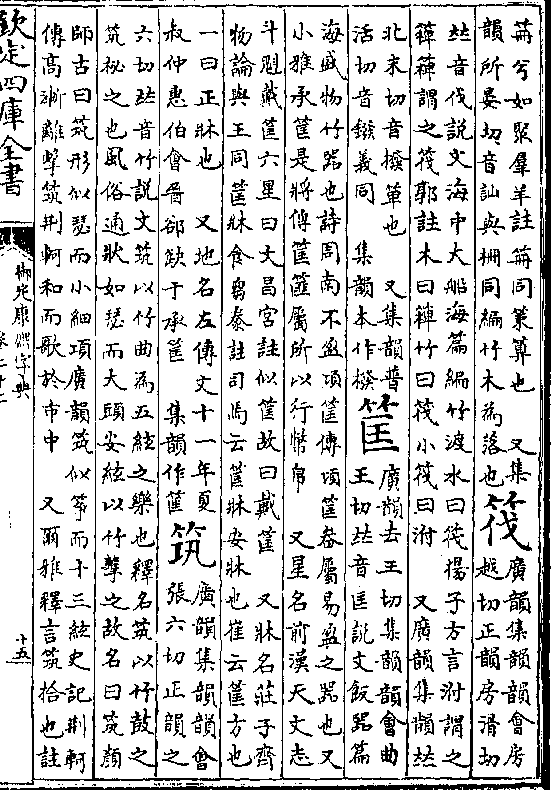 笧兮如聚羣羊註笧同策算也　又集
韻所晏切音訕與柵同編竹木為落也
筏
廣韻集韻韻會房
越切正韻房滑切
𠀤音伐說文海中大船海篇編竹渡水曰筏揚子方言泭謂之
䉬䉬謂之筏郭註木曰䉬竹曰筏小筏曰泭　又廣韻集韻𠀤
北末切音撥箄也　又集韻普
活切音鏺義同　集韻本作橃
筐
廣韻去王切集韻韻會曲
王切𠀤音匡說文飯器篇
海盛物竹器也詩周南不盈頃筐傳頃筐畚屬易盈之器也又
小雅承筐是將傳筐篚屬所以行幣帛　又星名前漢天文志
斗魁戴筐六星曰文昌宮註似筐故曰戴筐　又牀名莊子齊
物論與王同筐牀食芻豢註司馬云筐牀安牀也崔云筐方也
一曰正牀也　又地名左傳文十一年夏
叔仲惠伯會晉郤缺于承筐　集韻作筺
筑
廣韻集韻韻會
張六切正韻之
六切𠀤音竹說文筑以竹曲為五絃之樂也釋名筑以竹鼓之
筑柲之也風俗通狀如瑟而大頭安絃以竹擊之故名曰筑顔
師古曰筑形似瑟而小細項廣韻筑似箏而十三絃史記荆軻
傳高漸離擊筑荆軻和而歌於市中　又爾雅釋言筑拾也註
欽定四庫全書
御定康熙字典
卷二十二
十五